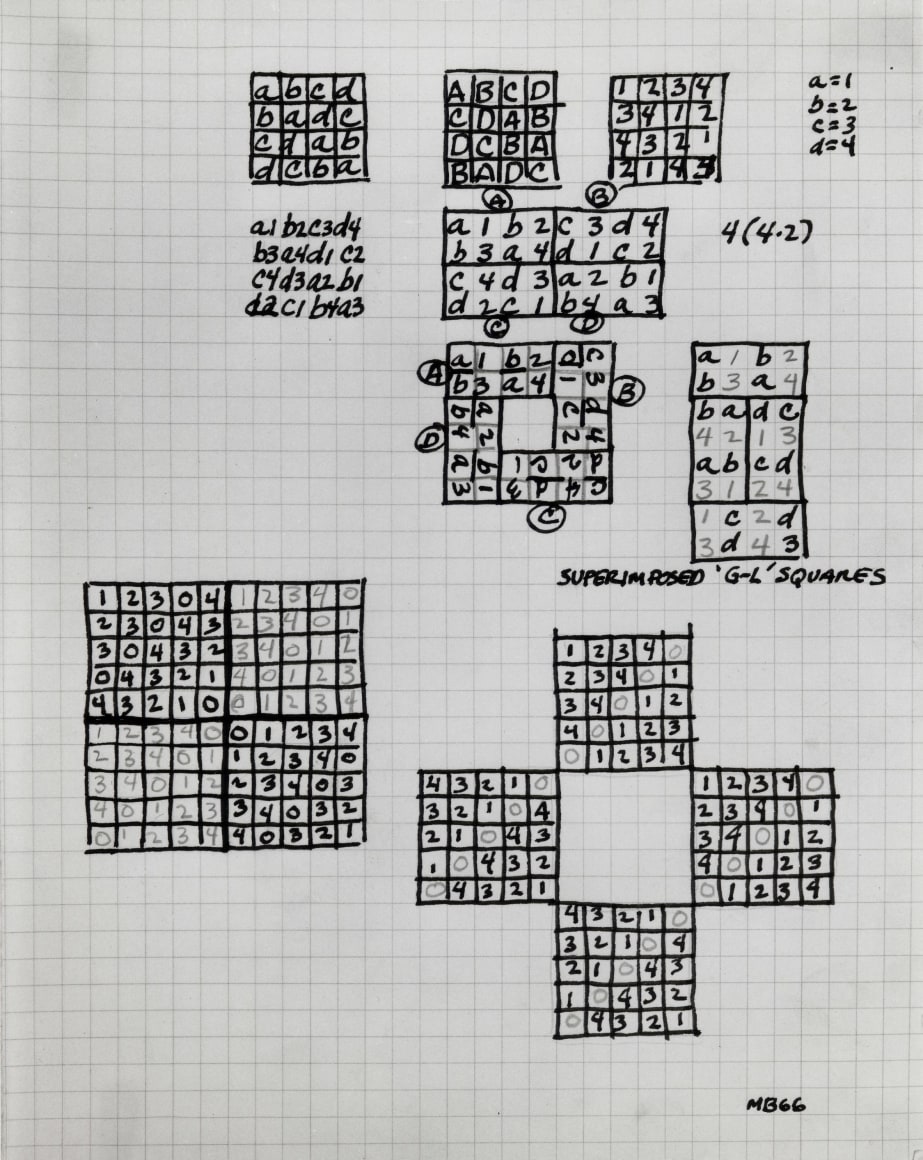 a b c d
b a d c
c d a b
d c b a
A B C D
C D A B
D C B A
B A D C
1 2 3 4
3 4 1 2
4 3 2 1
2 1 4 3
a=1
b=2
c=3
d=4
A
B
a1b2c3d4
b3a4d1c2
c4d3a2b1
d2c1b4a3
a 1 b 2 c 3 d 4
b 3 a 4 d 1 c 2
c 4 d 3 a 2 b 1
d 2 c 1 b 4 a 3
C
D
4(4·2)
A
a 1 b 2 d c
b 3 a 4 1 3
B
b a c d
D
4 2 2 4
a b 1 c 2 d
3 1 3 d 4 c
C
a 1 b 2
b 3 a 4
b a d c
4 2 1 3
a b c d
3 1 2 4
1 c 2 d
3 d 4 3
SUPERIMPOSED 'G-L' SQUARES
1 2 3 0 4 1 2 3 4 0
2 3 0 4 3 2 3 4 0 1
3 0 4 3 2 3 4 0 1 2
0 4 3 2 1 4 0 1 2 3
4 3 2 1 0 0 1 2 3 4
1 2 3 4 0 0 1 2 3 4
2 3 4 0 1 1 2 3 4 0
3 4 0 1 2 2 3 4 0 3
4 0 1 2 3 3 4 0 3 2
0 1 2 3 4 4 0 3 2 1
1 2 3 4 0
2 3 4 0 1
3 4 0 1 2
4 0 1 2 3
0 1 2 3 4
4 3 2 1 0
3 2 1 0 4
2 1 0 4 3
1 0 4 3 2
0 4 3 2 1
1 2 3 4 0
2 3 4 0 1
3 4 0 1 2
4 0 1 2 3
0 1 2 3 4
4 3 2 1 0
3 2 1 0 4
2 1 0 4 3
1 0 4 3 2
0 4 3 2 1
MB66